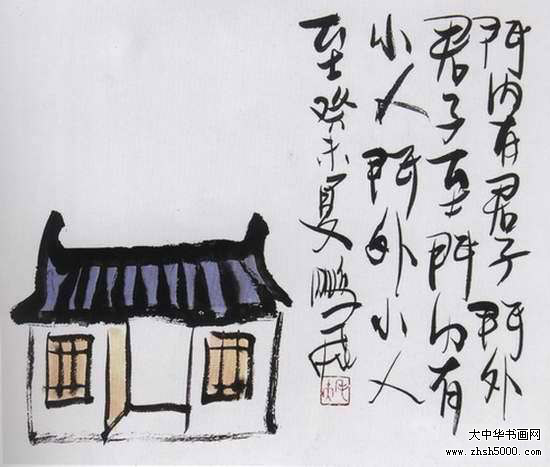 門内有君子門外
君子至門内有
小人門外小人
至癸未夏鵬
大中华书画网
www.zhsh5000.com